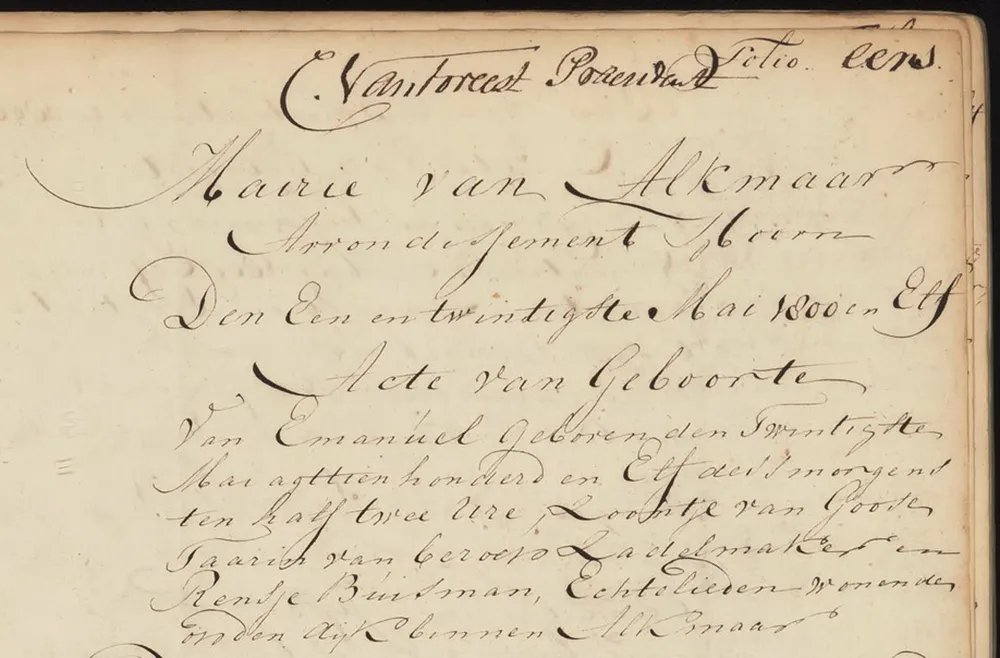 C. Vanforeest President Folio eers
Mairie van Alkmaar
Arrondissement Hoorn
Den Een en twintigste Mai 1800 en Elf
Acte van Geboorte
Van Emanuel Geboren den Twintigste
Mai agttien honderd en Elf des smorgens
ten half twee Ure, Soontje van Goose
Taarin van beroep Zadelmaker en
Rensje Buisman, Echtelieden wonende
op den dijk binnen Alkmaar